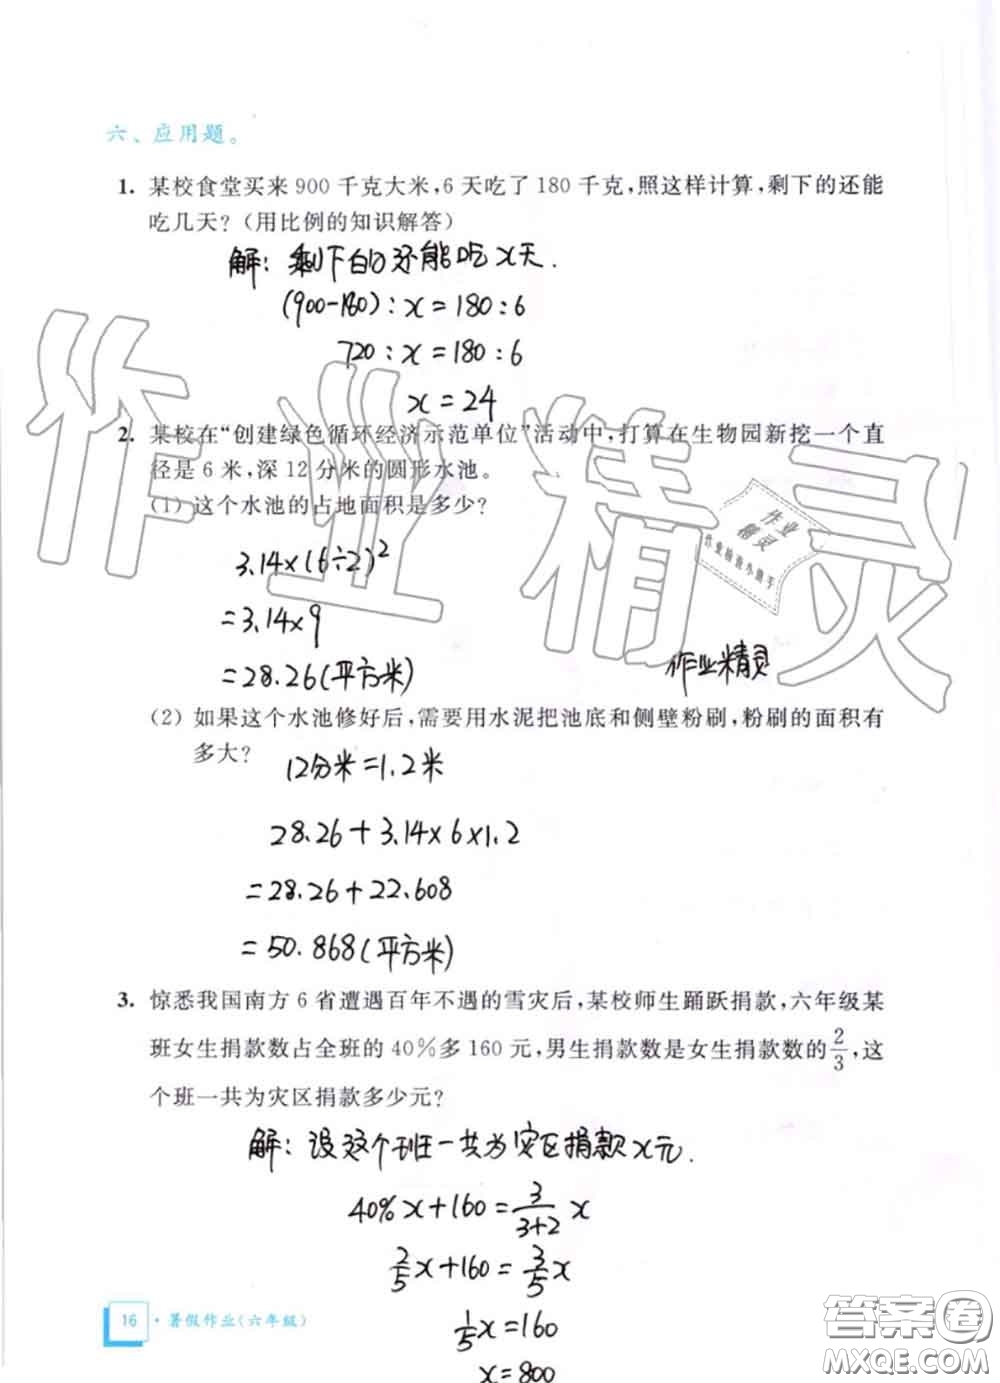 六、应用题。
1. 某校食堂买来900千克大米,6天吃了180千克,照这样计算,剩下的还能
吃几天?(用比例的知识解答)
解:剩下的还能吃x天.
(900-180):x=180:6
720:x=180:6
x=24
2. 某校在“创建绿色循环经济示范单位”活动中,打算在生物园新挖一个直
径是6米,深12分米的圆形水池。
(1) 这个水池的占地面积是多少?
3.14×(6÷2)²
=3.14×9
=28.26(平方米)
作业精灵
作业
精灵
作业精灵
(2) 如果这个水池修好后,需要用水泥把池底和侧壁粉刷,粉刷的面积有
多大?
12分米=1.2米
28.26+3.14×6×1.2
=28.26+22.608
=50.868(平方米)
3. 惊悉我国南方6省遭遇百年不遇的雪灾后,某校师生踊跃捐款,六年级某
班女生捐款数占全班的40%多160元,男生捐款数是女生捐款数的2/3,这
个班一共为灾区捐款多少元?
解:设这个班一共为灾区捐款x元.
40%x+160=3/(3+2)x
2/5x+160=3/5x
1/5x=160
x=800
16·暑假作业(六年级)
答案圈
MXQE.COM